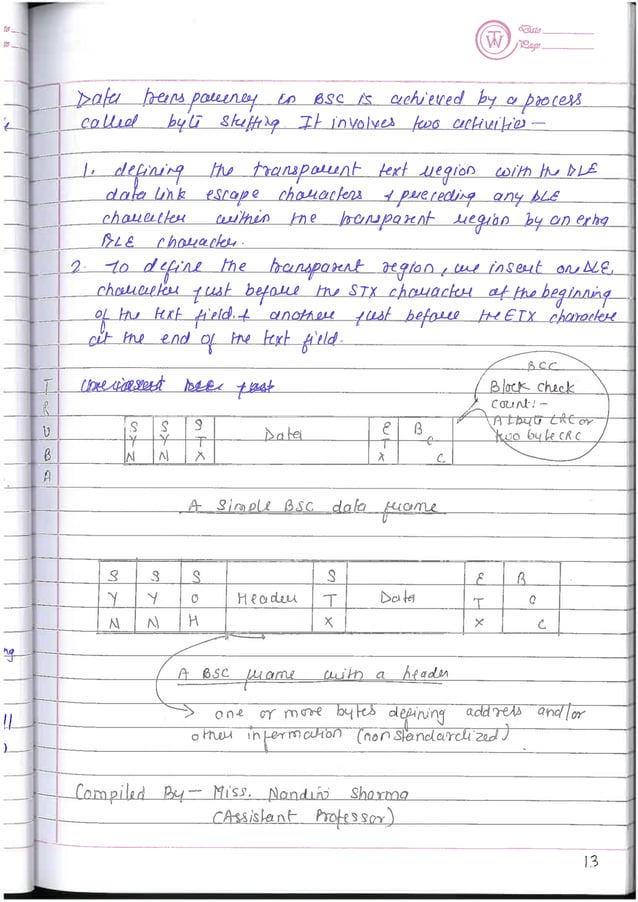 TW
Date
Page
Data transparency in BSC is achieved by a process
called byte stuffing It involves two activities —
1. defining the transparent text region with the DLE
data link escape characters & preceding any DLE
character within the transparent region by an extra
DLE character.
2. To define the transparent region, we insert one DLE
character just before the STX character at the beginning
of the text field. & another just before the ETX character
at the end of the text field.
BCC
Block check
count:-
A 1 byte LRC or
two byte CRC
TRUBA
SYN SYN STX Data ETX BCC
A Simple BSC data frame
SYN SYN SOH Header STX Data ETX BCC
A BSC frame with a header
one or more bytes defining address and/or
other information (non standardized)
Compiled By — Miss. Nandini Sharma
(Assistant Professor)
13